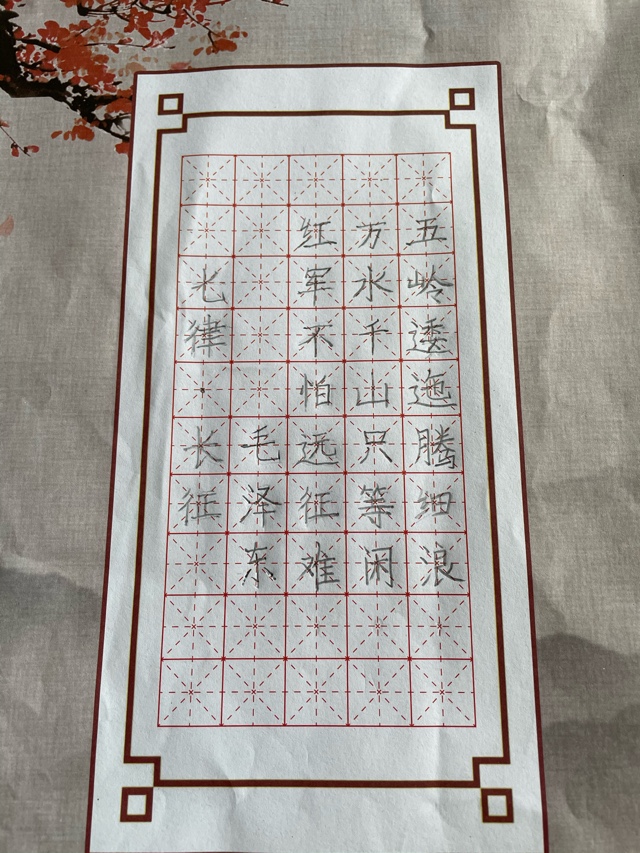 七律·长征
毛泽东
红军不怕远征难
万水千山只等闲
五岭逶迤腾细浪